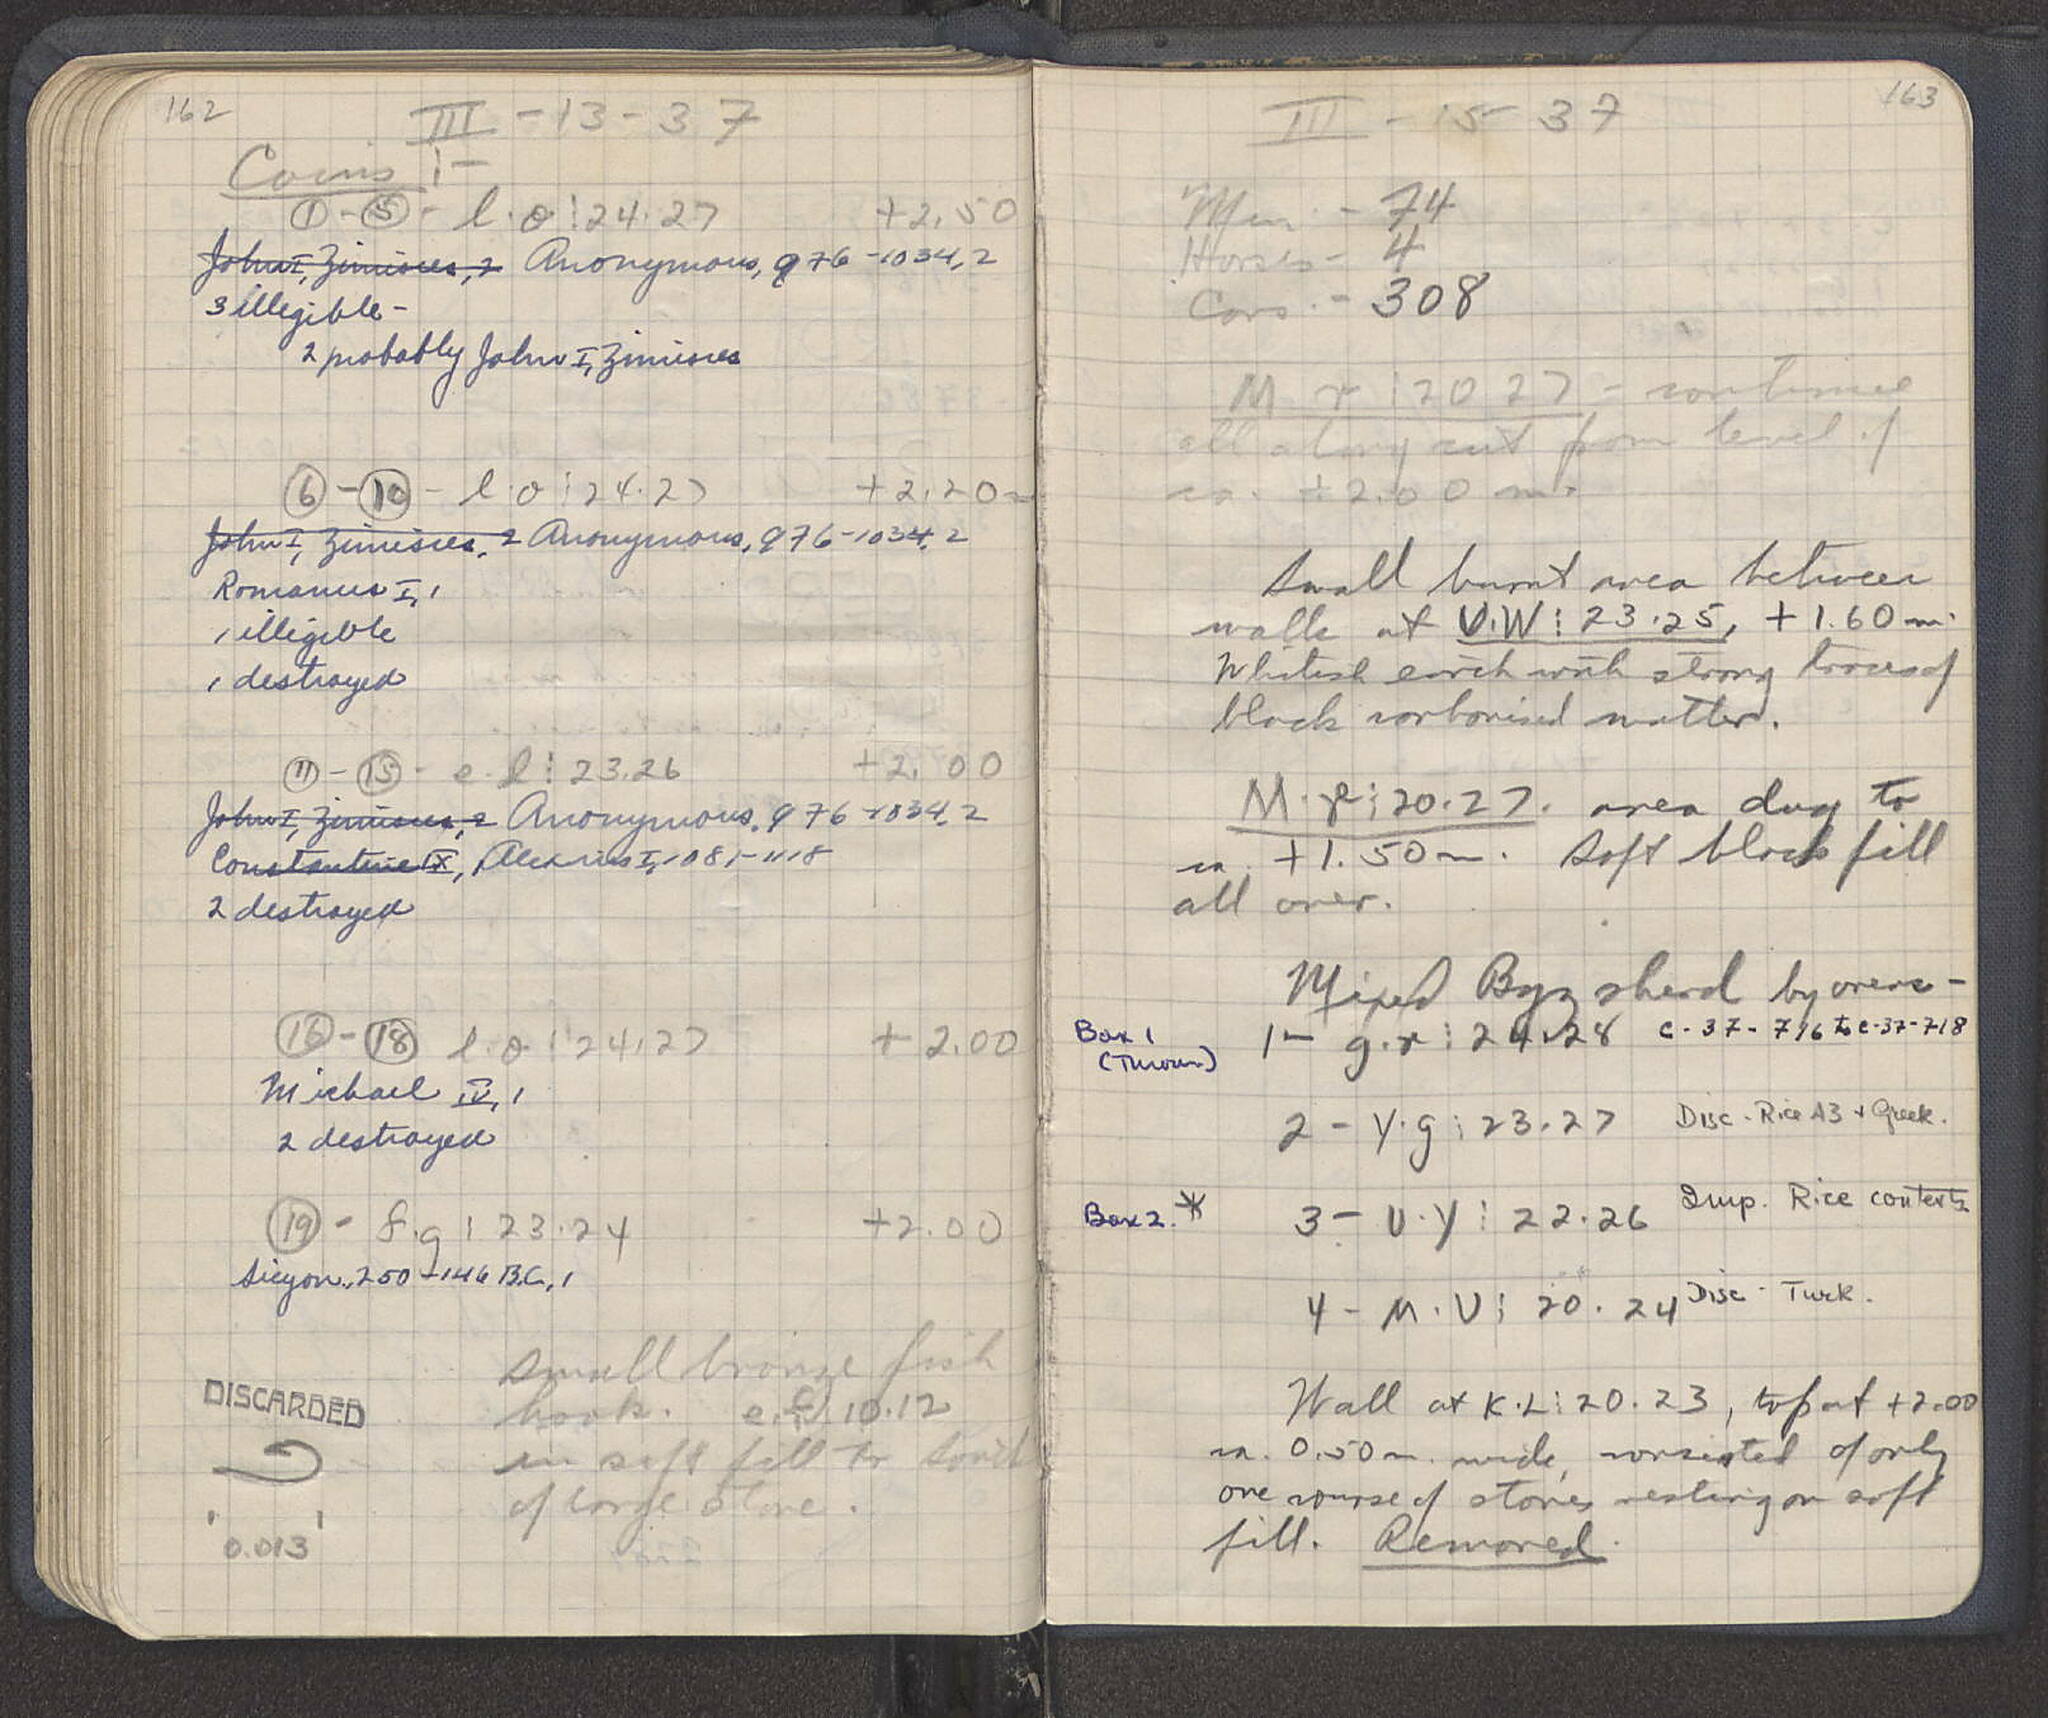 162
III - 13 - 37
Coins :-
1 - 5 - l.o : 24.27 +2.50
John I, Zimisces, 2 Anonymous, 976-1034, 2
3 illegible -
2 probably John I, Zimisces
6 - 10 - l.o : 24.27 +2.20 m
John I, Zimisces, 2 Anonymous, 976-1034, 2
Romanus I, 1
1 illegible
1 destroyed
11 - 15 - e.l : 23.26 +2.00
John I, Zimisces, 2 Anonymous, 976-1034, 2
Constantine IX, 1 Alexius I, 1081-1118
2 destroyed
16 - 18 l.o : 24.27 +2.00
Michael IV, 1
2 destroyed
19 - f.g : 23.24 +2.00
Sicyon, 250-146 B.C., 1
small bronze fish
hook. 10.12
in soft fill to south
of large stone.
DISCARDED
0.013
163
III - 15 - 37
Men - 74
Horses - 4
Cars - 308
M.r : 20.27 - continue
all along cut from level of
ca. +2.00 m.
Small burnt area between
walls at U.W : 23.25, +1.60 m.
Whitish earth with strong traces of
black carbonised matter.
M.r : 20.27. area dug to
ca. +1.50 m. Soft black fill
all over.
Mixed Byz sherd by areas -
Box 1 1 - g.r : 24.28 C-37-716 to C-37-718
(Thrown)
2 - Y.g : 23.27 Disc - Rice A3 + Greek.
Box 2. * 3 - U.Y : 22.26 Imp. Rice contexts
4 - M.U : 20.24 Disc - Turk.
Wall at K.L : 20.23, top at +2.00
ca. 0.50 m. wide, consisted of only
one course of stones resting on soft
fill. Removed.